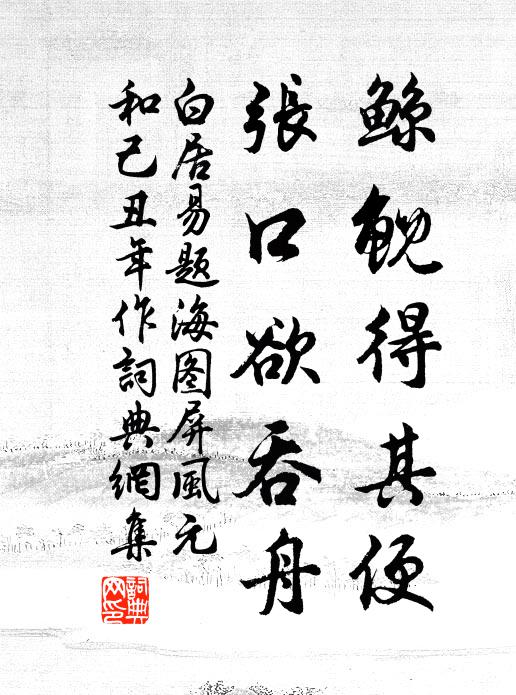 鲸鲵得其便
張口欲吞舟
白居易題海图屏風元
和己丑年作詞典網集
詞典
网印